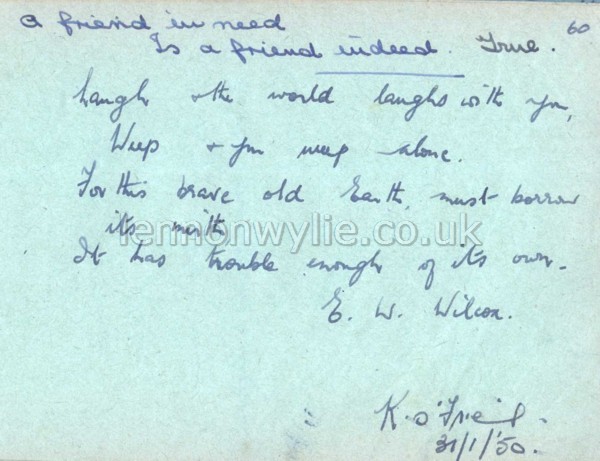 A friend in need
60
Is a friend indeed. True.
Laugh & the world laughs with you,
Weep & you weep alone.
For this brave old Earth must borrow
its mirth
lennonwylie.co.uk
It has trouble enough of its own.
E. W. Wilcox.
K. O'
31/1/50.